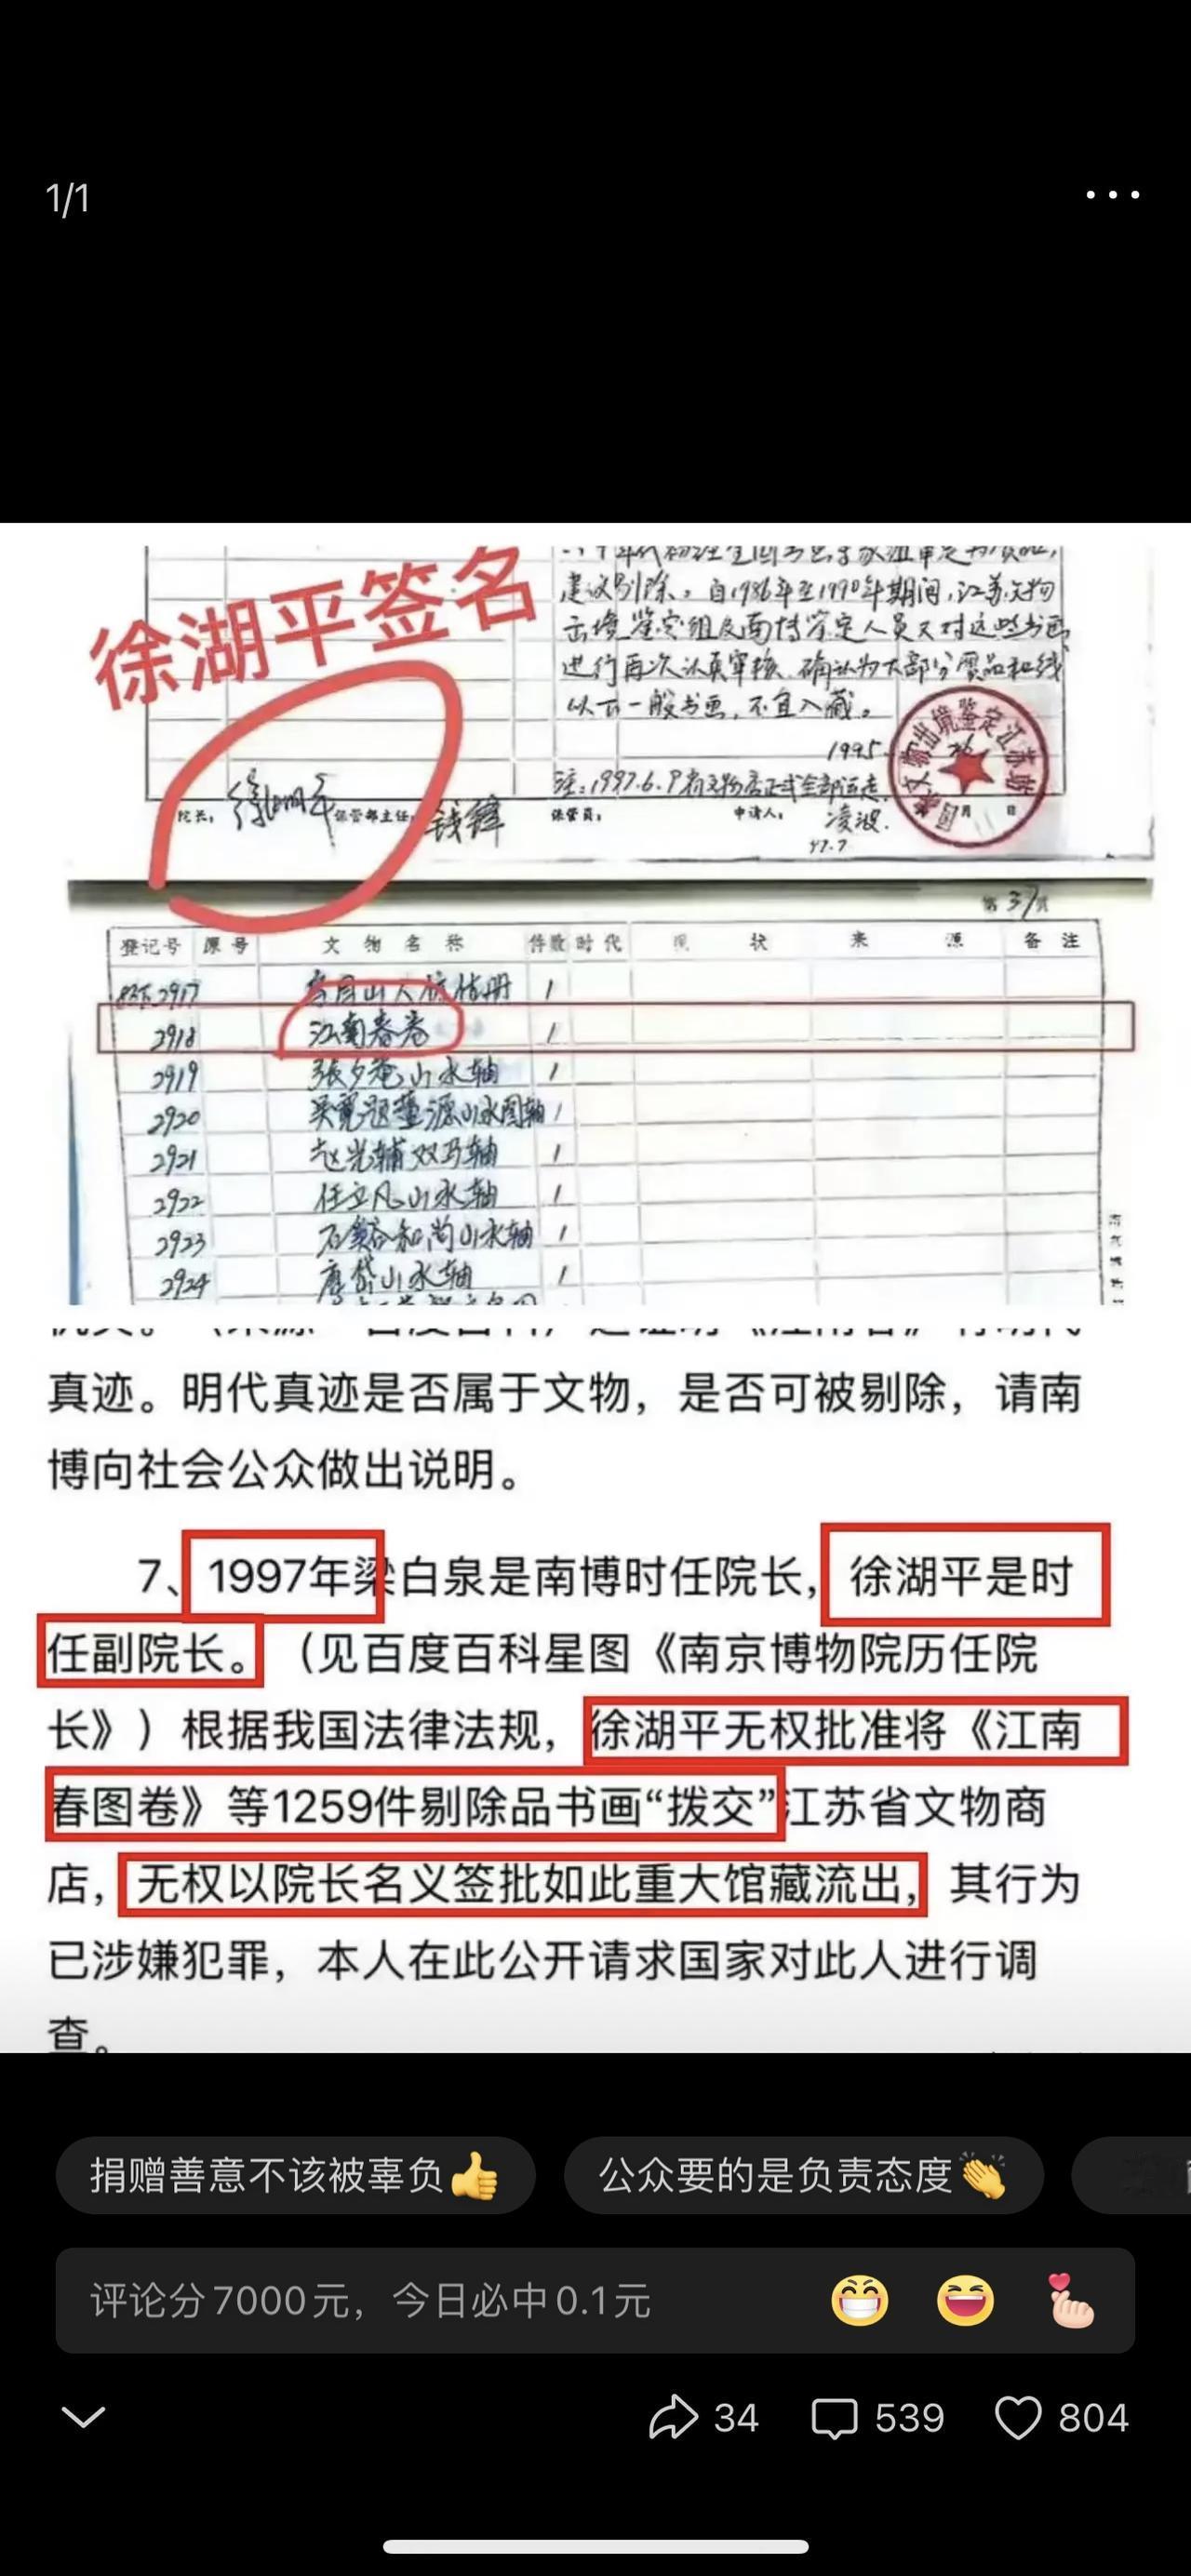 1/1
徐湖平签名
建议剔除。自1986年至1990年期间,江苏文物
出境鉴定组及南博鉴定人员又对这些书画
进行再次认真审核,确认为大部分赝品和线
以下一般书画,不宜入藏。
1995.
注:1997.6.9有文物店正式全部运走.
院长: 徐湖平 保管部主任: 钱锋 保管员: 申请人: 凌波.
97.7
月 日
文物出境鉴定江苏站
第37页
登记号 原号 文物名称 件数 时代 现状 来源 备注
2917 1
2918 江南春卷 1
2919 張夕菴山水轴 1
2920 吴宽题董源山水图轴 1
2921 赵光辅双马轴 1
2922 任立凡山水轴 1
2923 和尚山水轴 1
2924 唐岱山水轴 1
真迹。明代真迹是否属于文物，是否可被剔除，请南
博向社会公众做出说明。
7、1997年梁白泉是南博时任院长，徐湖平是时
任副院长。（见百度百科星图《南京博物院历任院
长》）根据我国法律法规，徐湖平无权批准将《江南
春图卷》等1259件剔除品书画“拨交”江苏省文物商
店，无权以院长名义签批如此重大馆藏流出，其行为
已涉嫌犯罪，本人在此公开请求国家对此人进行调
查。
捐赠善意不该被辜负👍 公众要的是负责态度👏
评论分7000元，今日必中0.1元
34 539 804